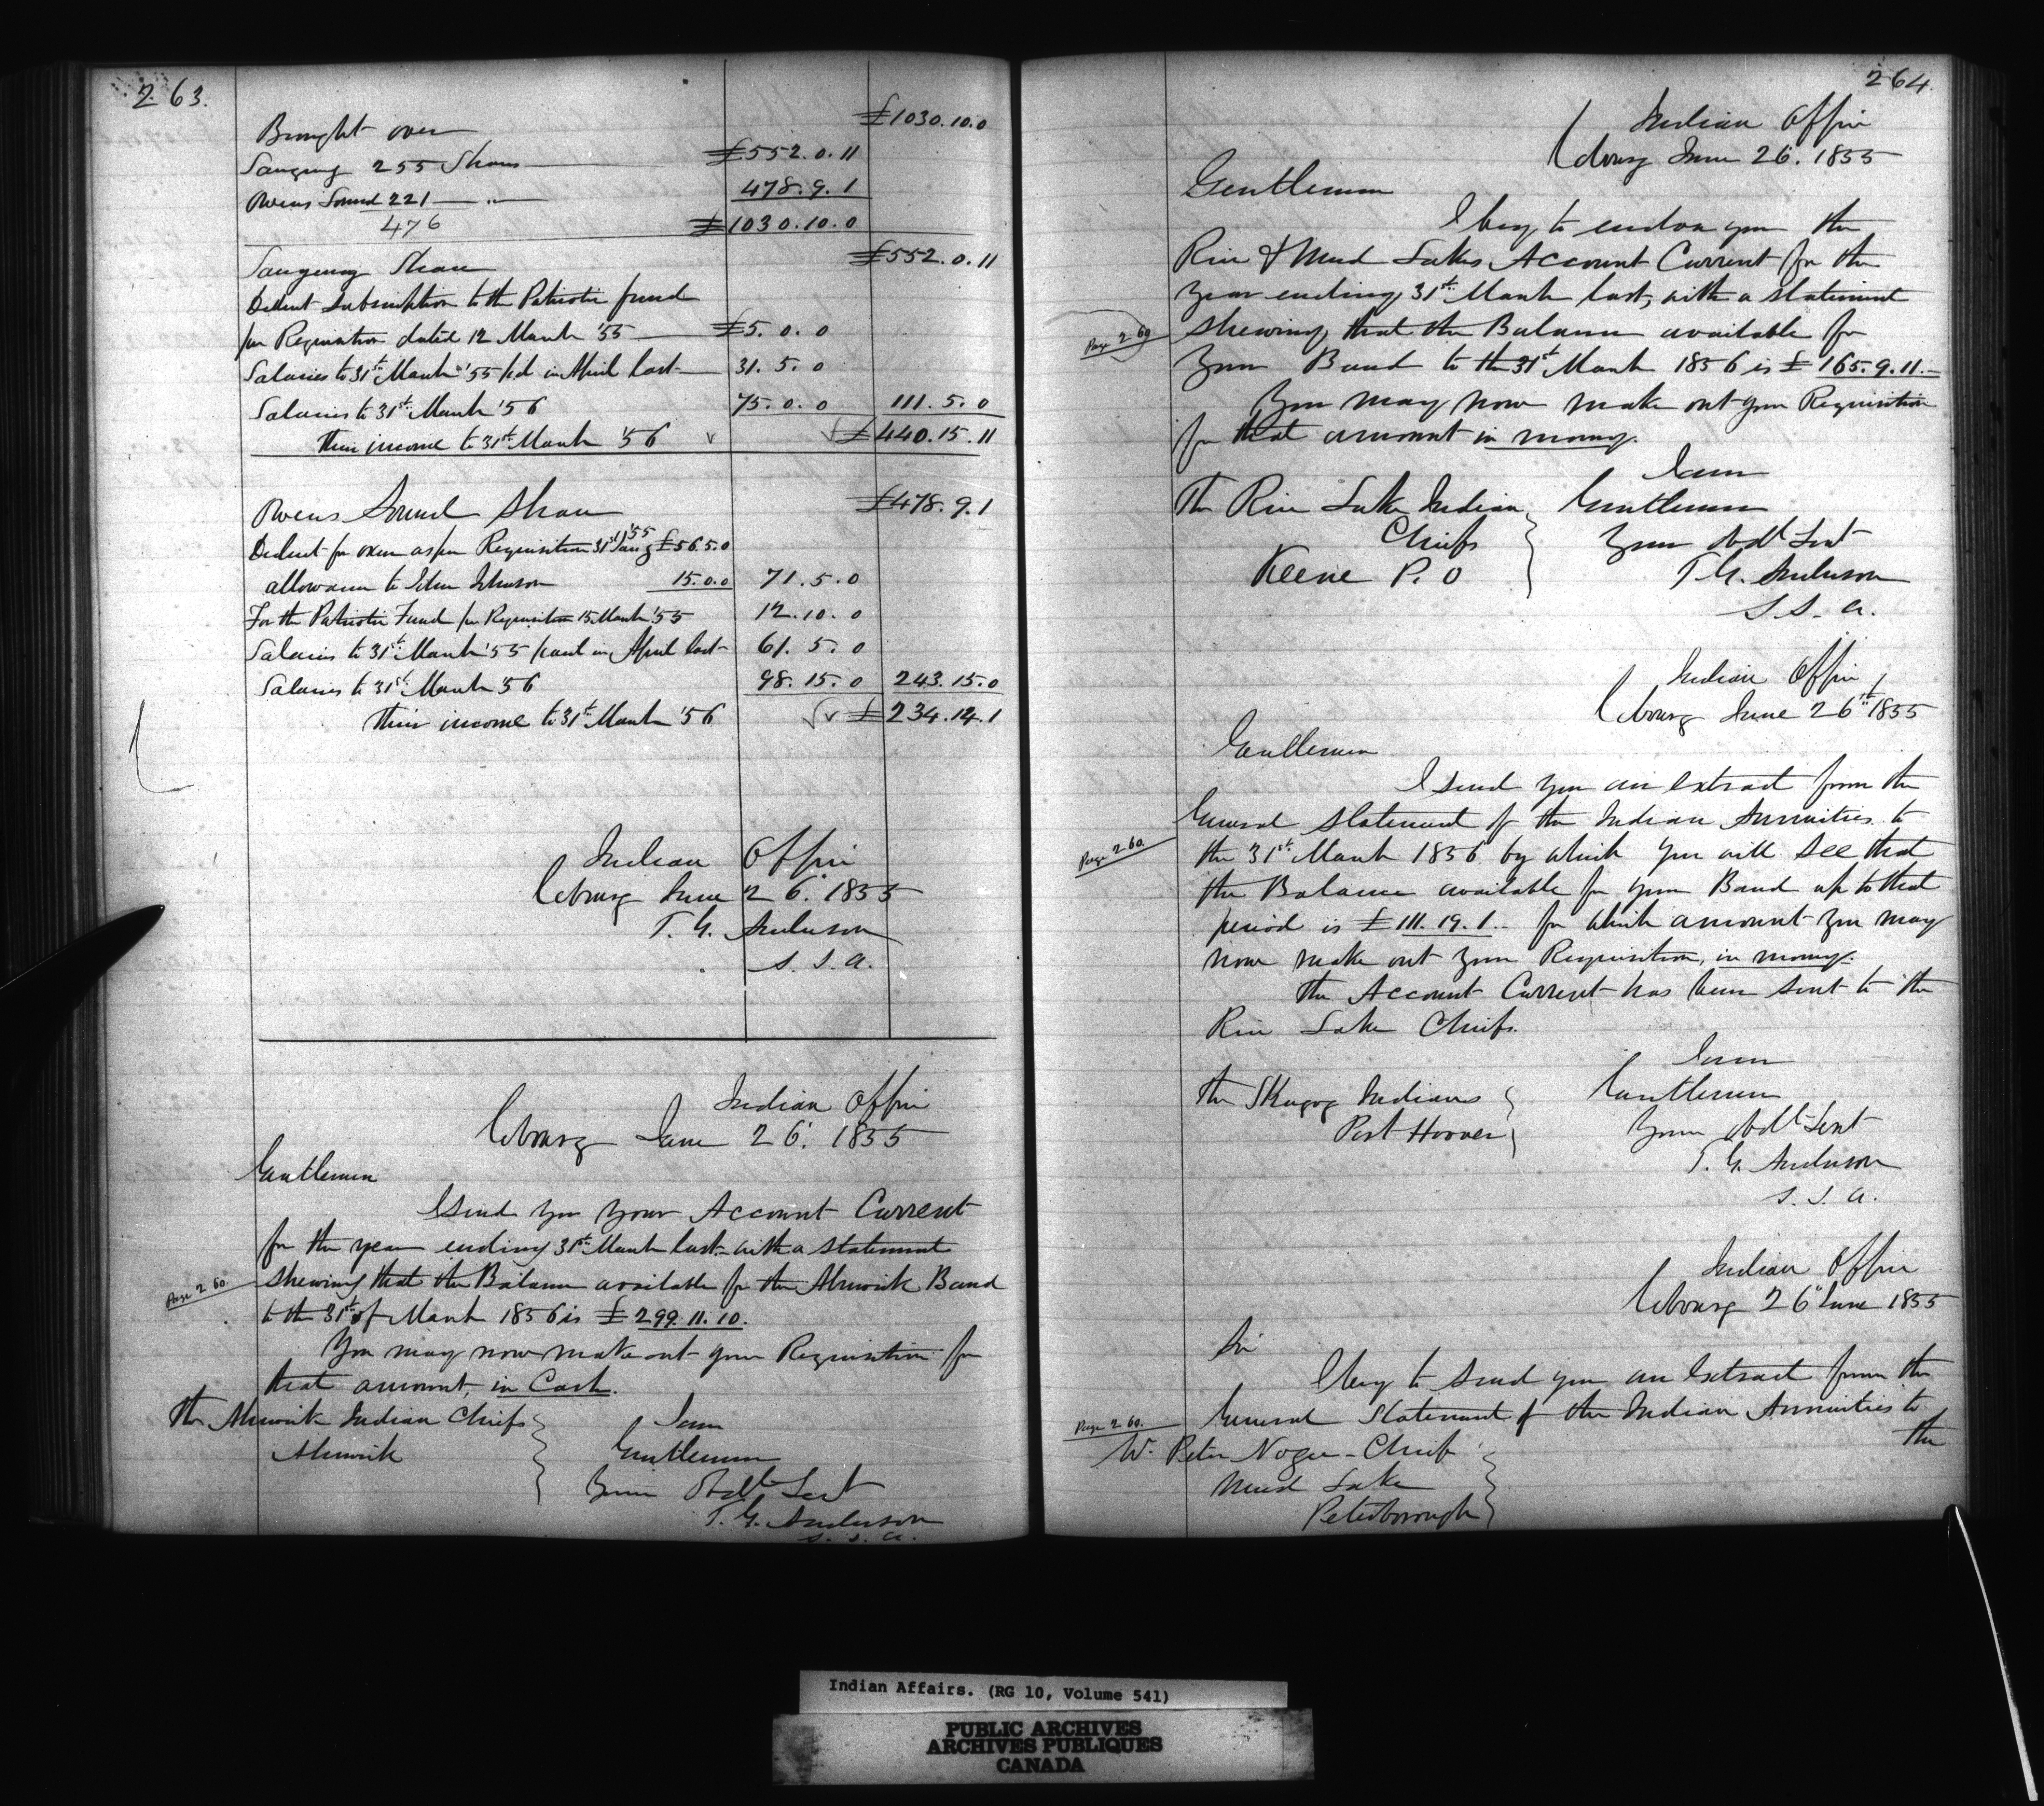 263.
Brought over £1030.10.0
Saugeeng 255 Shares £552.0.11
Owens Sound 221 — " — 478.9.1
476 £1030.10.0
Saugeeng Share £552.0.11
Deduct subscription to the Patriotic fund
per Requisition dated 12 March '55 £5.0.0
Salaries to 31st March '55 pd in April last 31.5.0
Salaries to 31st March '56 75.0.0 111.5.0
Their income to 31st March '56 £440.15.11
Owens Sound Share £478.9.1
Deduct for oxen as per Requisition 31st Jany '55 £56.5.0
allowance to John Johnson 15.0.0 71.5.0
For the Patriotic Fund per Requisition 15 March '55 12.10.0
Salaries to 31st March '55 paid in April last 61.5.0
Salaries to 31st March '56 98.15.0 243.15.0
Their income to 31st March '56 £234.14.1
Indian Office
Cobourg June 26. 1855
T. G. Anderson
S. I. A.
Indian Office
Cobourg June 26. 1855
Gentlemen
I send you your Account Current
for the year ending 31st March last with a statement
Page 260. shewing that the Balance available for the Alnwick Band
to the 31st of March 1856 is £299.11.10.
You may now make out your Requisition for
that amount, in Cash.
The Alnwick Indian Chiefs
Alnwick
I am
Gentlemen
Your Obdt Servt
T. G. Anderson
S. I. A.
264.
Indian Office
Cobourg June 26. 1855
Gentlemen
I beg to enclose you the
Rice & Mud Lakes Account Current for the
Year ending 31st March last, with a statement
Page 260 shewing that the Balance available for
Your Band to the 31st March 1856 is £165.9.11.
You may now make out your Requisition
for that amount in money.
I am
The Rice Lake Indian Gentlemen
Chiefs Your Obdt Servt
Keene P. O T. G. Anderson
S. I. A.
Indian Office
Cobourg June 26th 1855
Gentlemen
I send you an extract from the
General Statement of the Indian Annuities to
Page 260. the 31st March 1856 by which you will see that
the Balance available for your Band up to that
period is £111.19.1. for which amount you may
now make out your Requisition, in money.
The Account Current has been sent to the
Rice Lake Chiefs.
I am
The Skugog Indians Gentlemen
Port Hoover Your Obdt Servt
T. G. Anderson
S. I. A.
Indian Office
Cobourg 26 June 1855
Sir
I beg to send you an Extract from the
Page 260. General Statement of the Indian Annuities to
the
Peter Nogee - Chief
Mud Lake
Peterborough
Indian Affairs. (RG 10, Volume 541)
PUBLIC ARCHIVES
ARCHIVES PUBLIQUES
CANADA